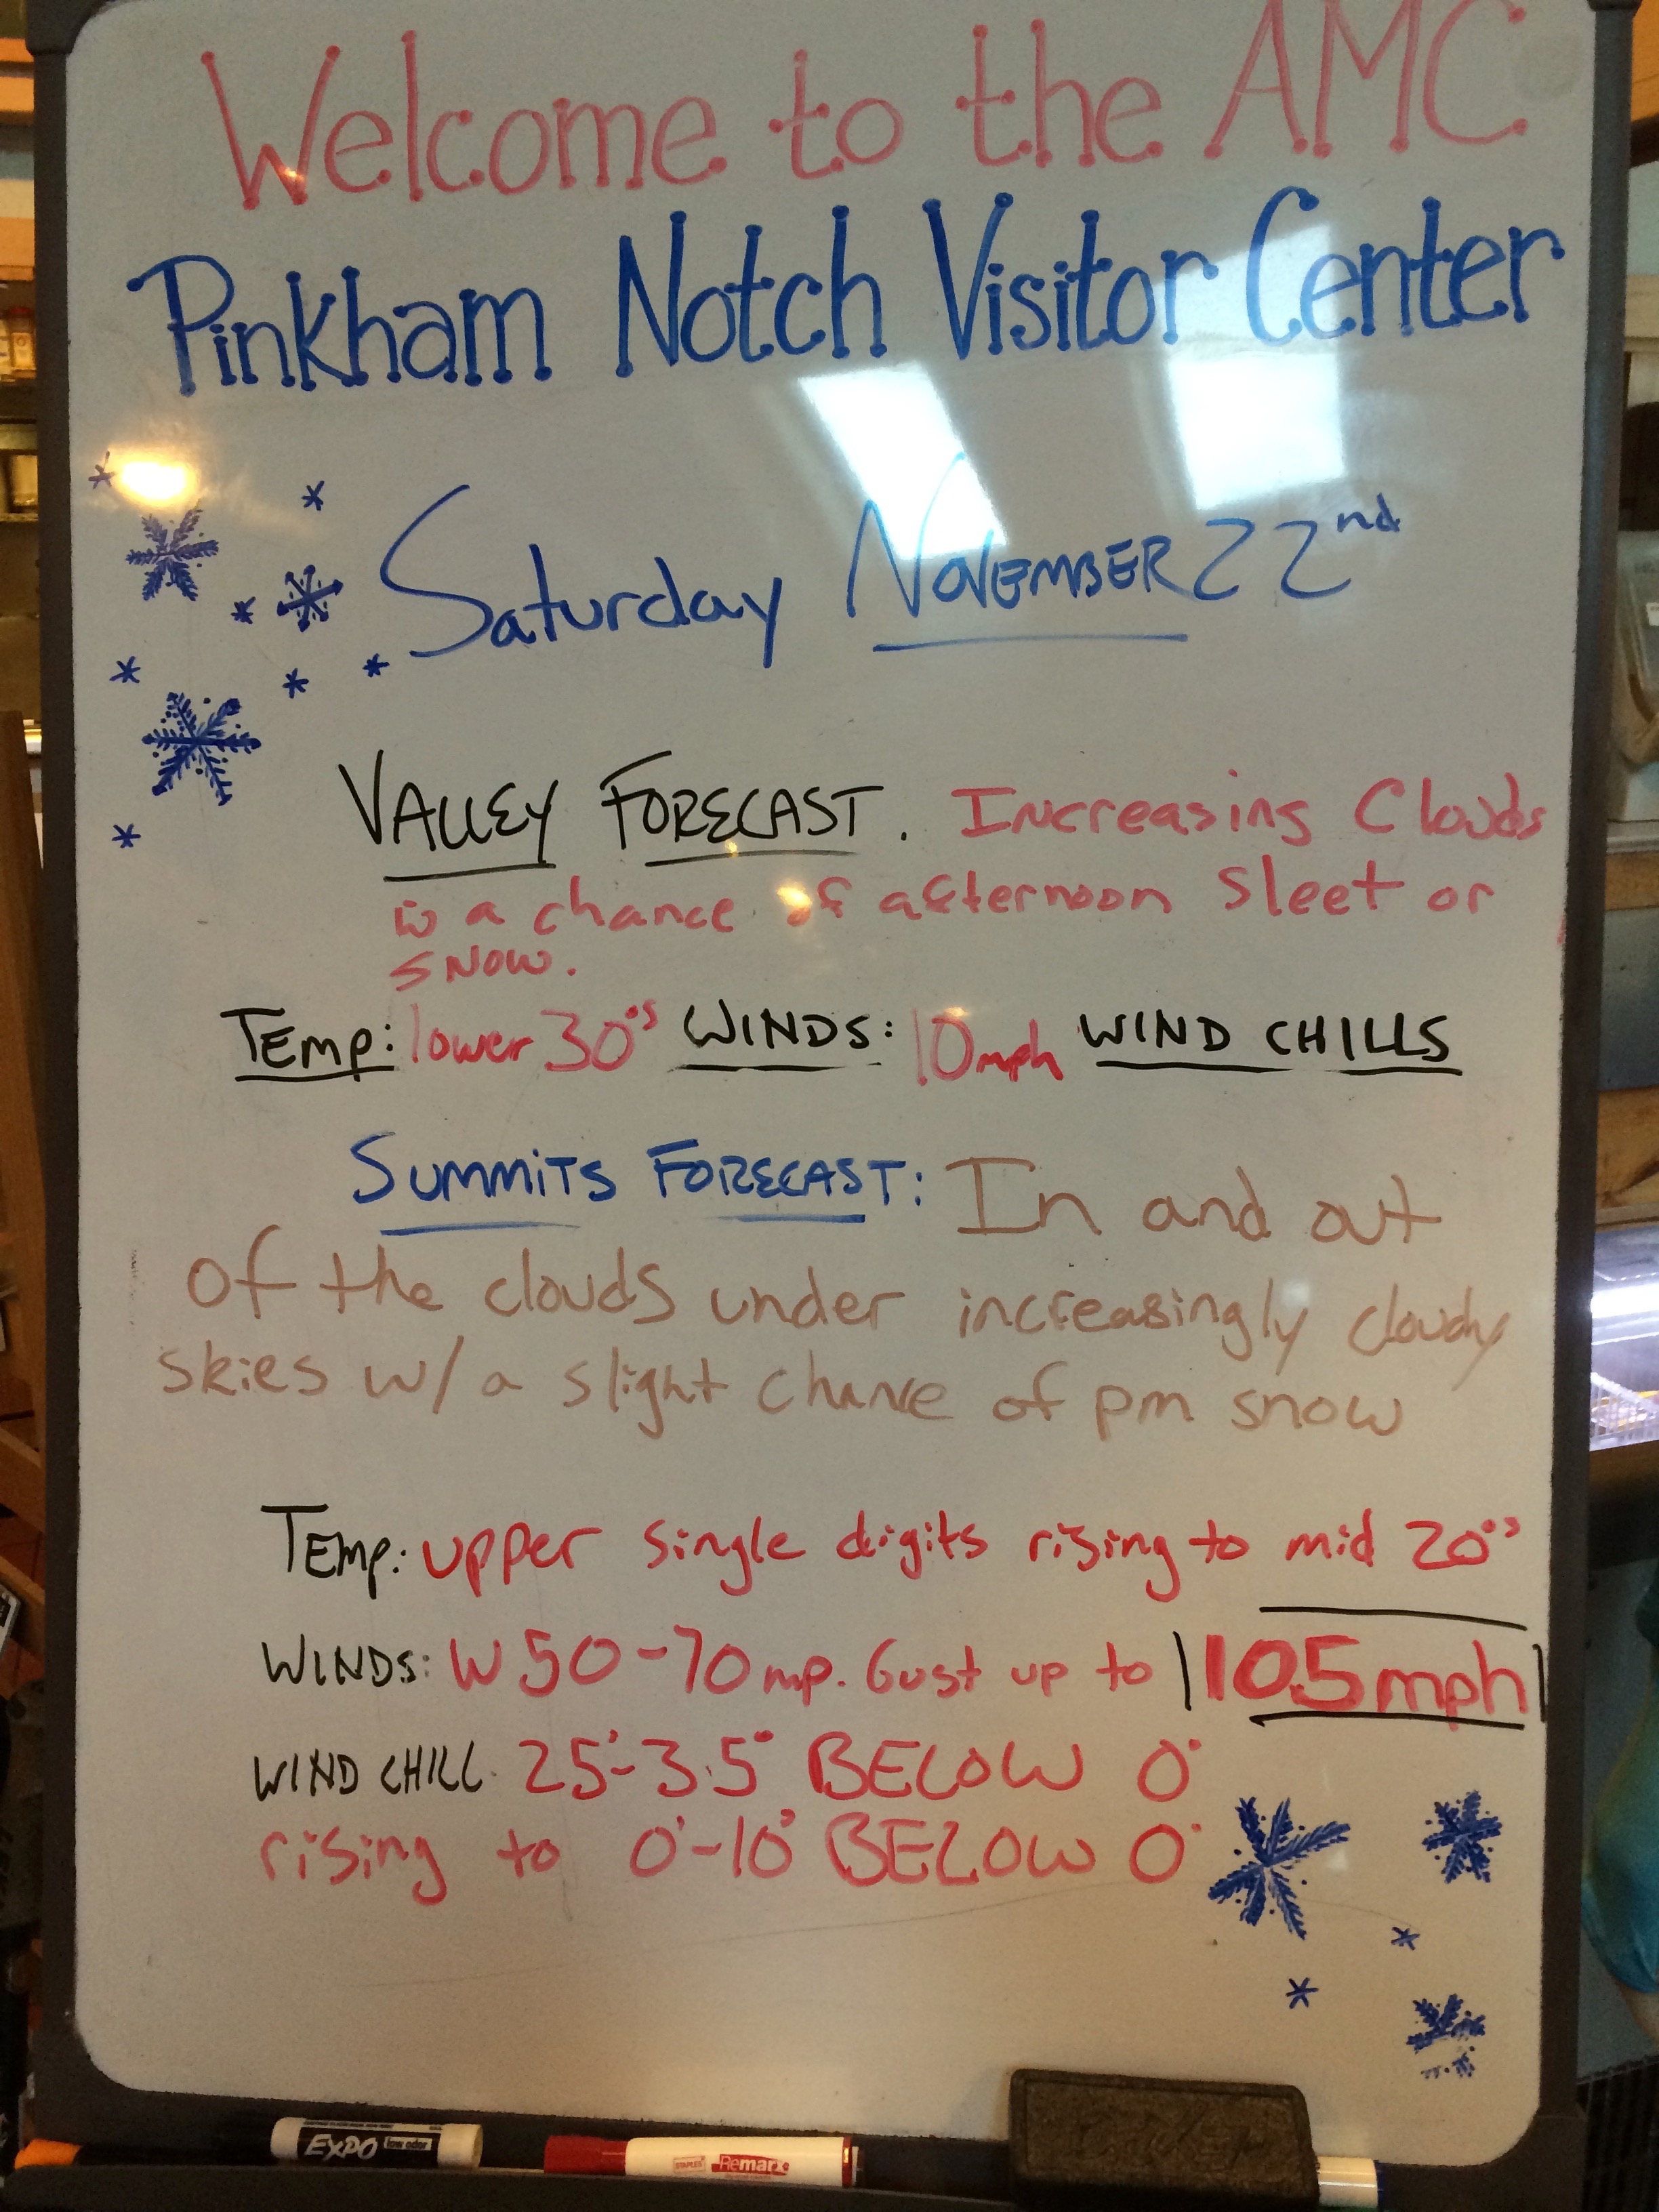 Welcome to the AMC
Pinkham Notch Visitor Center
Saturday November 22nd
VALLEY FORECAST. Increasing Clouds
w a chance of afternoon Sleet or
snow.
TEMP: lower 30°s WINDS: 10mph WIND CHILLS
SUMMITS FORECAST: In and out
of the clouds under increasingly cloudy
skies w/ a slight chance of pm snow
TEMP: upper single digits rising to mid 20°s
WINDS: W 50-70 mp. Gust up to 105mph
WIND CHILL 25°-35° BELOW 0°
rising to 0°-10° BELOW 0°
EXPO low odor
STAPLES Remarx